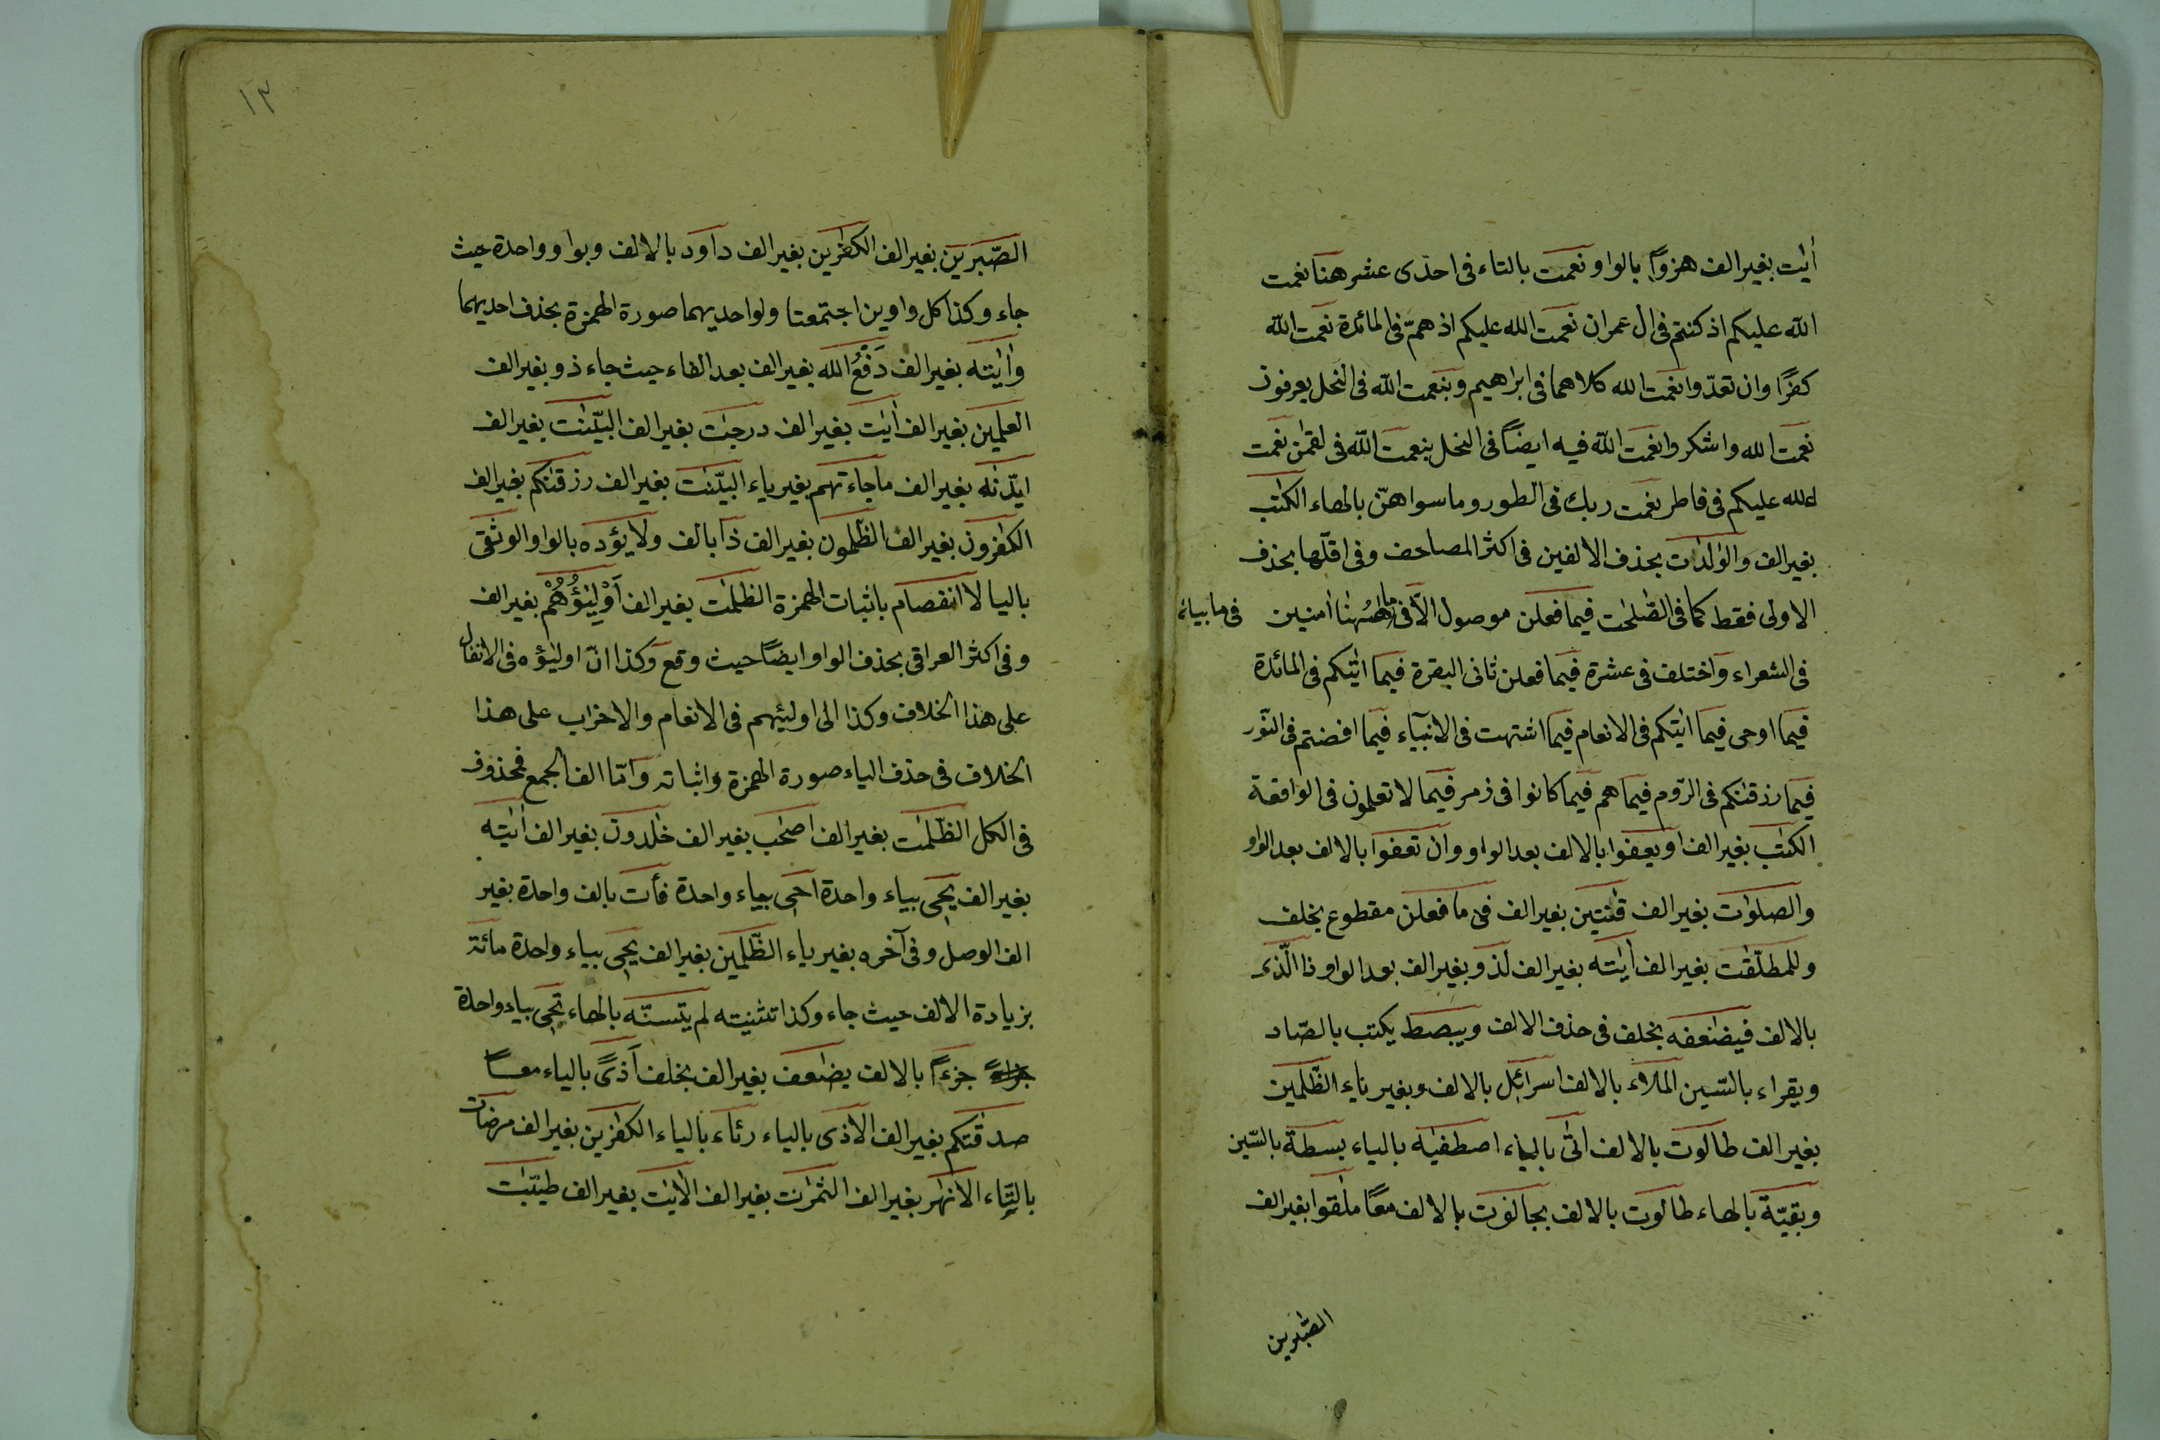 اٰيٰت بغير الف هزوًا بالواو نعمت بالتاء فى احدى عشر هنا نعمت
الله عليكم اذ كنتم فى ال عمران نعمت الله عليكم اذ همّ فى المائدة نعمت الله
كفرًا وان تعدّوا نعمت الله كلاهما فى ابراهيم وبنعمت الله فى النحل يعرفون
نعمت الله واشكروا نعمت الله فيه ايضًا فى النحل بنعمت الله فى لقمٰن نعمت
الله عليكم فى فاطر نعمت ربك فى الطور وما سواهنّ بالهاء الكتٰب
بغير الف والوٰلدٰت بحذف الالفين فى اكثر المصاحف وفى اقلّها بحذف
الاولى فقط كما فى الصّٰلحٰت فيما فعلن موصول الّا فى ما هٰهنا اٰمنين فى ما بيانه
فى الشعراء واختلف فى عشرة فيما فعلن ثانى البقرة فيما اٰتٰيكم فى المائدة
فيما اوحى فيما اٰتٰيكم فى الانعام فيما اشتهت فى الانبيآء فيما افضتم فى النّور
فيما رزقنٰكم فى الرّوم فيما هم فيما كانوا فى زمر فيما لا تعلمون فى الواقعة
الكتٰب بغير الف او يعفوا بالالف بعد الواو وان تعفوا بالالف بعد الواو
والصلوٰات بغير الف قٰنتين بغير الف فى ما فعلن مقطوع بخلف
وللمطلّقٰت بغير الف اٰيٰته بغير الف لذو بغير الف بعد الواو ذا الّذى
بالالف فيضٰعفه بخلف فى حذف الالف ويبصط يكتب بالصّاد
ويقراء بالسّين الملاَء بالالف اسرائل بالالف وبغير ياء الظّٰلمين
بغير الف طالوت بالالف انّٰى بالياء اصطفيٰه بالياء بسطة بالسّين
وبقيّة بالهاء طالوت بالالف بجالوت بالالف معًا ملٰقوا بغير الف
الصّٰبرين
١٣
الصّٰبرين بغير الف الكٰفرين بغير الف داود بالالف وبواو واحدة حيث
جاء وكذا كل واوين اجتمعتا ولو احديهما صورة الهمزة بحذف احديهما
واٰتٰيه بغير الف دَفْعُ الله بغير الف بعد الفاء حيث جاء ذو بغير الف
العٰلمين بغير الف اٰيٰت بغير الف درجٰت بغير الف البيّنٰت بغير الف
ايّدنٰه بغير الف ما جاءتهم بغير ياء البيّنٰت بغير الف رزقنٰكم بغير الف
الكٰفرون بغير الف الظّٰلمون بغير الف ذا بالف ولا يؤده بالواو الوثقى
باليا لا انفصام باثبات الهمزة الظلمٰت بغير الف اَوْلِيٰؤُهُمْ بغير الف
وفى اكثر العراقى بحذف الواو ايضًا حيث وقع وكذا انّ اوليٰؤه فى الانفال
على هذا الخلاف وكذا الى اوليٰئهم فى الانعام والاحزاب على هذا
الخلاف فى حذف الياء صورة الهمزة واثباته وامّا الف الجمع فمحذوف
فى الكل الظّلمٰت بغير الف اصحٰب بغير الف خٰلدون بغير الف اٰتٰيه
بغير الف يحى بياء واحدة احى بياء واحدة فأت بالف واحدة بغير
الف الوصل وفى آخره بغير ياء الظّٰلمين بغير الف يحى بياء واحدة مائة
بزيادة الالف حيث جاء وكذا تثنيته لم يتسنّه بالهاء تحى بياء واحدة
جزءًا بالالف يضٰعف بغير الف بخلف اَذىً بالياء معًا
صدقٰتكم بغير الف الاذى بالياء رئاء بالياء الكٰفرين بغير الف مرضات
بالتّاء الانهٰر بغير الف الثمرٰت بغير الف الاٰيٰت بغير الف طيّبٰت